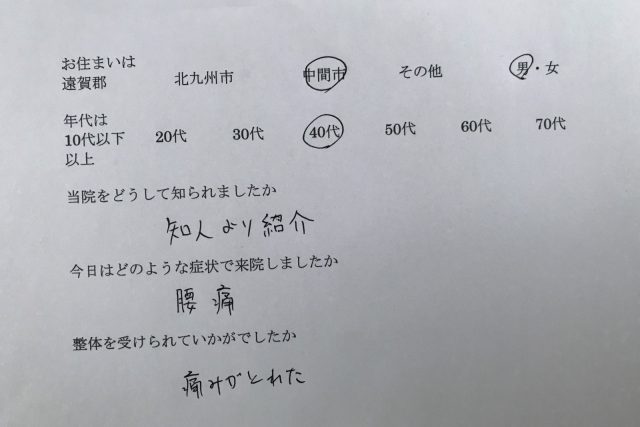 お住まいは
遠賀郡 北九州市 中間市 その他 男・女
年代は
10代以下 20代 30代 40代 50代 60代 70代
以上
当院をどうして知られましたか
知人より紹介
今日はどのような症状で来院しましたか
腰痛
整体を受けられていかがでしたか
痛みがとれた